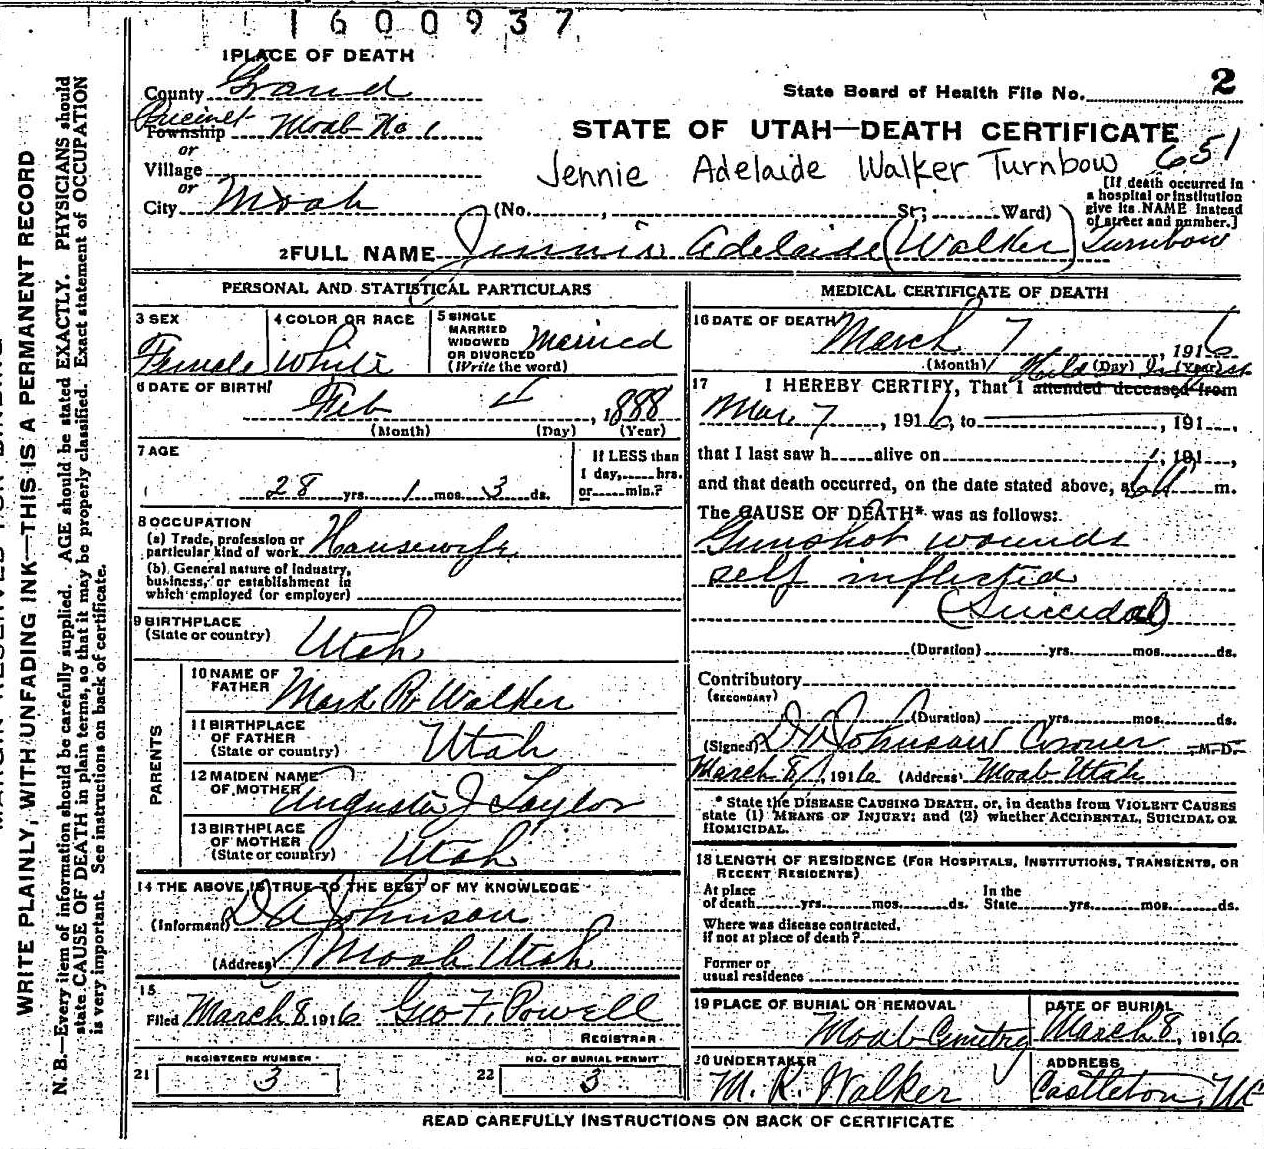 1600937
1 PLACE OF DEATH
County Grand
State Board of Health File No. 2
Precinct
Township Moab No. 1
or
STATE OF UTAH—DEATH CERTIFICATE
Village
Jennie Adelaide Walker Turnbow 651
or
City Moab (No. , St; Ward)
[If death occurred in
a hospital or institution
give its NAME instead
of street and number.]
2 FULL NAME Jennie Adelaide (Walker) Turnbow
PERSONAL AND STATISTICAL PARTICULARS
3 SEX
Female
4 COLOR OR RACE
White
5 SINGLE
MARRIED
WIDOWED
OR DIVORCED
(Write the word)
Married
6 DATE OF BIRTH
Feb 4, 1888
(Month) (Day) (Year)
7 AGE
28 yrs. 1 mos. 3 ds.
If LESS than
1 day, hrs.
or min.?
8 OCCUPATION
(a) Trade, profession or
particular kind of work Housewife
(b) General nature of industry,
business, or establishment in
which employed (or employer)
9 BIRTHPLACE
(State or country) Utah
PARENTS
10 NAME OF
FATHER Mark R. Walker
11 BIRTHPLACE
OF FATHER
(State or country) Utah
12 MAIDEN NAME
OF MOTHER Augusta J Taylor
13 BIRTHPLACE
OF MOTHER
(State or country) Utah
14 THE ABOVE IS TRUE TO THE BEST OF MY KNOWLEDGE
(Informant) D A Johnson
(Address) Moab Utah
15
Filed March 8 1916 Geo F. Powell
REGISTRAR
REGISTERED NUMBER
21 3
NO. OF BURIAL PERMIT
22 3
MEDICAL CERTIFICATE OF DEATH
16 DATE OF DEATH March 7, 1916
(Month) (Day) (Year)
Held Inquest
17 I HEREBY CERTIFY, That I attended deceased from
Mar. 7, 1916, to , 191 ,
that I last saw h alive on , 191 ,
and that death occurred, on the date stated above, at m.
The CAUSE OF DEATH* was as follows:
Gunshot wounds
self inflicted
(Suicidal)
(Duration) yrs. mos. ds.
Contributory
(SECONDARY)
(Duration) yrs. mos. ds.
(Signed) D A Johnson Coroner M.D.
March 8, 1916 (Address) Moab Utah
* State the DISEASE CAUSING DEATH, or, in deaths from VIOLENT CAUSES
state (1) MEANS OF INJURY; and (2) whether ACCIDENTAL, SUICIDAL OR
HOMICIDAL.
18 LENGTH OF RESIDENCE (FOR HOSPITALS, INSTITUTIONS, TRANSIENTS, OR
RECENT RESIDENTS)
At place
of death yrs. mos. ds.
In the
State yrs. mos. ds.
Where was disease contracted,
if not at place of death?
Former or
usual residence
19 PLACE OF BURIAL OR REMOVAL
Moab Cemetery
DATE OF BURIAL
March 8, 1916
20 UNDERTAKER
M. R. Walker
ADDRESS
Castleton, Ut
READ CAREFULLY INSTRUCTIONS ON BACK OF CERTIFICATE
WRITE PLAINLY, WITH UNFADING INK—THIS IS A PERMANENT RECORD
N. B.—Every item of information should be carefully supplied. AGE should be stated EXACTLY. PHYSICIANS should
state CAUSE OF DEATH in plain terms, so that it may be properly classified. Exact statement of OCCUPATION
is very important. See instructions on back of certificate.